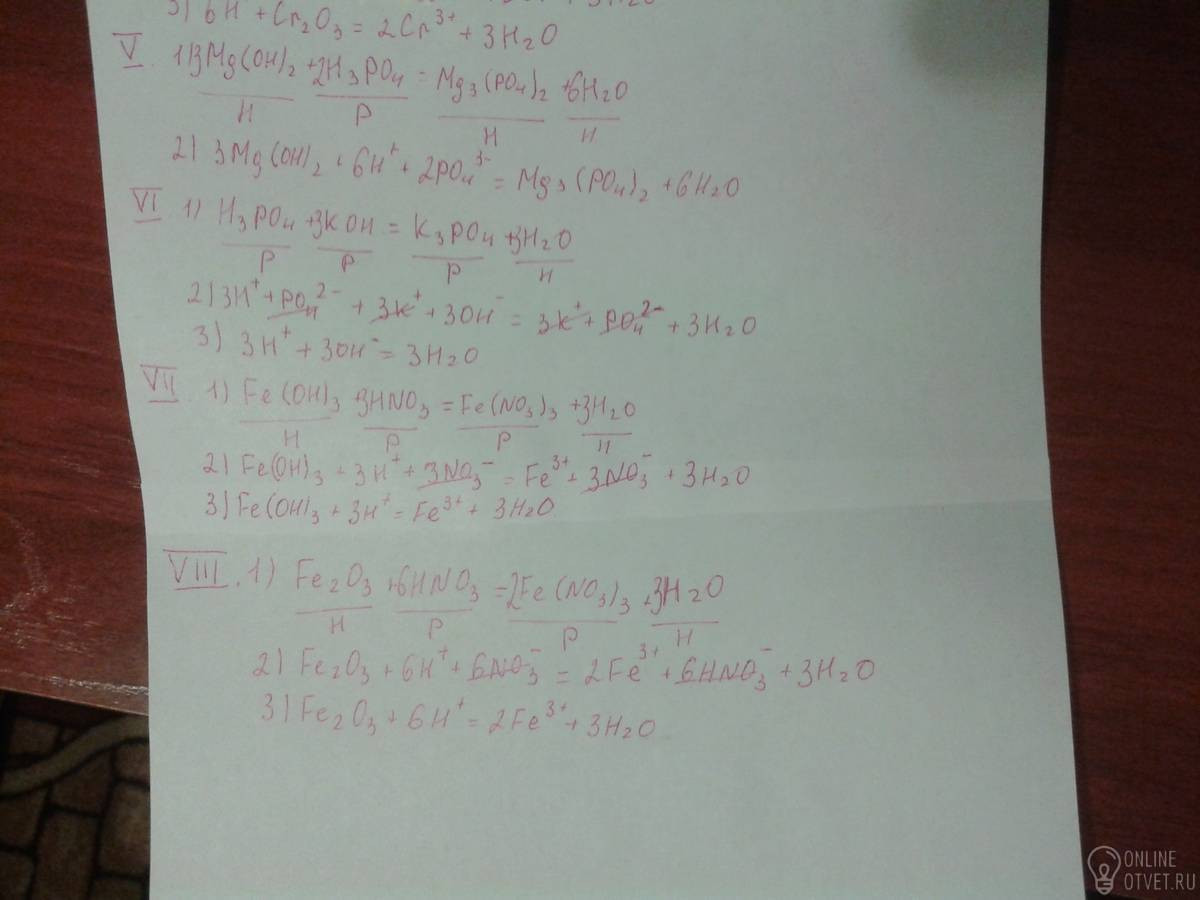 3) 6H⁺ + Cr₂O₃ = 2Cr³⁺ + 3H₂O
V 1) 3Mg(OH)₂ + 2H₃PO₄ = Mg₃(PO₄)₂ + 6H₂O
Н Р Н Н
2) 3Mg(OH)₂ + 6H⁺ + 2PO₄³⁻ = Mg₃(PO₄)₂ + 6H₂O
VI 1) H₃PO₄ + 3KOH = K₃PO₄ + 3H₂O
Р Р Р Н
2) 3H⁺ + PO₄²⁻ + 3K⁺ + 3OH⁻ = 3K⁺ + PO₄²⁻ + 3H₂O
3) 3H⁺ + 3OH⁻ = 3H₂O
VII 1) Fe(OH)₃ + 3HNO₃ = Fe(NO₃)₃ + 3H₂O
Н Р Р Н
2) Fe(OH)₃ + 3H⁺ + 3NO₃⁻ = Fe³⁺ + 3NO₃⁻ + 3H₂O
3) Fe(OH)₃ + 3H⁺ = Fe³⁺ + 3H₂O
VIII. 1) Fe₂O₃ + 6HNO₃ = 2Fe(NO₃)₃ + 3H₂O
Н Р Р Н
2) Fe₂O₃ + 6H⁺ + 6NO₃⁻ = 2Fe³⁺ + 6HNO₃⁻ + 3H₂O
3) Fe₂O₃ + 6H⁺ = 2Fe³⁺ + 3H₂O
ONLINE
OTVET.RU